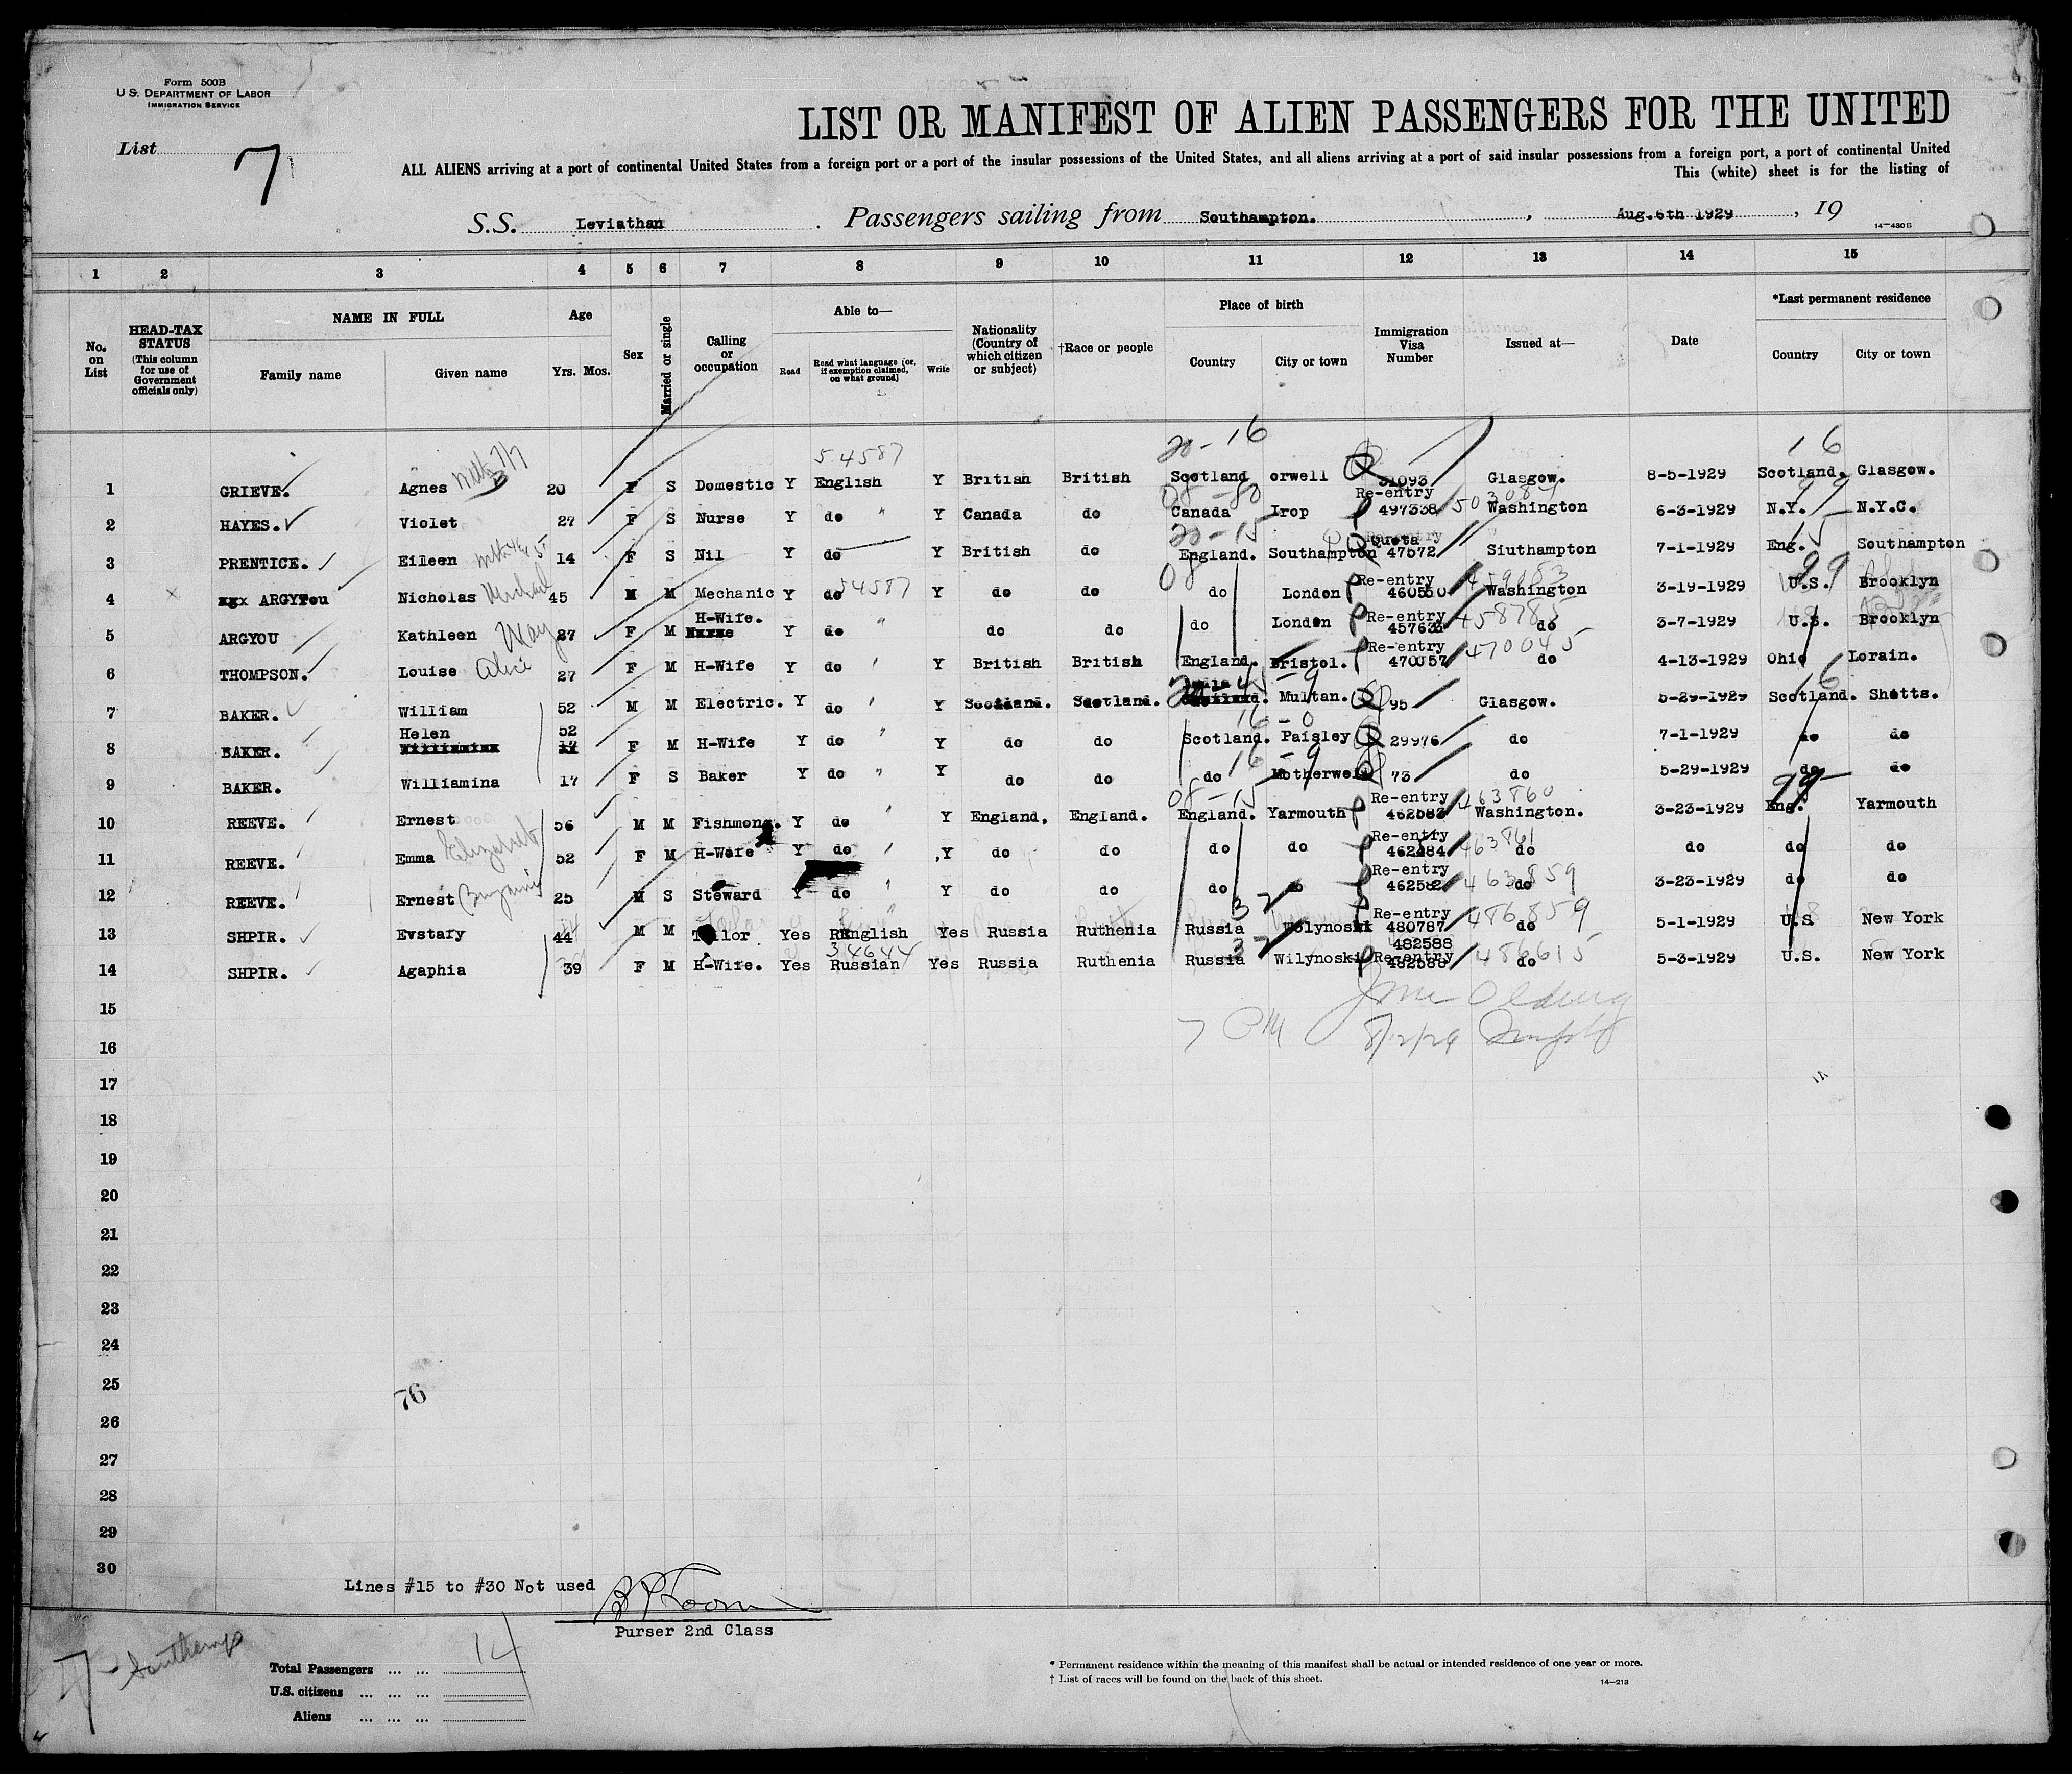 Form 500B
U.S. DEPARTMENT OF LABOR
IMMIGRATION SERVICE
LIST OR MANIFEST OF ALIEN PASSENGERS FOR THE UNITED
List 7
ALL ALIENS arriving at a port of continental United States from a foreign port or a port of the insular possessions of the United States, and all aliens arriving at a port of said insular possessions from a foreign port, a port of continental United
This (white) sheet is for the listing of
S.S. Leviathan. Passengers sailing from Southampton., Aug.6th 1929, 19
14—430B
1 2 3 4 5 6 7 8 9 10 11 12 13 14 15
No. on List
HEAD-TAX STATUS (This column for use of Government officials only)
NAME IN FULL
Family name Given name
Age
Yrs. Mos.
Sex
Married or single
Calling or occupation
Able to—
Read Read what language [or, if exemption claimed, on what ground] Write
Nationality (Country of which citizen or subject)
†Race or people
Place of birth
Country City or town
Immigration Visa Number
Issued at—
Date
*Last permanent residence
Country City or town
5.4587 20-16 16
1 GRIEVE. Agnes 20 F S Domestic Y English Y British British Scotland orwell 31093 Glasgow. 8-5-1929 Scotland. Glasgow.
08-80 99
2 HAYES. Violet 27 F S Nurse Y do " Y Canada do Canada Irop Re-entry 497338 Washington 6-3-1929 N.Y. N.Y.C.
20-15 15
3 PRENTICE. Eileen 14 F S Nil Y do Y British do England. Southampton Quota 47572 Siuthampton 7-1-1929 Eng. Southampton
08 99
4 ARGYTou Nicholas Michael 45 M M Mechanic Y do 54587 Y do do do London Re-entry 460550 Washington 3-19-1929 U.S. Brooklyn
5 ARGYOU Kathleen May 27 F M H-Wife. Y do " do do do London Re-entry 457633 458785 do 3-7-1929 U.S. Brooklyn
6 THOMPSON. Louise Alice 27 F M H-Wife Y do " Y British British England. Bristol. Re-entry 470057 470045 do 4-13-1929 Ohio Lorain.
7 BAKER. William 52 M M Electric. Y do " Y Scotland. Scotland. Multan. 95 Glasgow. 5-29-1929 Scotland. Shotts.
16-0
8 BAKER. Helen 52 F M H-Wife Y do " Y do do Scotland. Paisley 29976 do 7-1-1929 do do
16-9
9 BAKER. Williamina 17 F S Baker Y do " Y do do do Motherwell 73 do 5-29-1929 do do
08-15 99
10 REEVE. Ernest 56 M M Fishmong. Y do " Y England, England. England. Yarmouth Re-entry 462583 463860 Washington. 3-23-1929 Eng. Yarmouth
11 REEVE. Emma Elizabeth 52 F M H-Wife Y do " Y do do do do Re-entry 462484 463861 do do do do
12 REEVE. Ernest (Benjamin 25 M S Steward Y do " Y do do do do Re-entry 462582 463859 do 3-23-1929 do do
32
13 SHPIR. Evstafy 44 M M Tailor Yes English Yes Russia Ruthenia Russia Wolynosik Re-entry 480787 486859 do 5-1-1929 U.S New York
34644 32 482588
14 SHPIR. Agaphia 39 F M H-Wife. Yes Russian Yes Russia Ruthenia Russia Wilynoski Re-entry 482588 486615 do 5-3-1929 U.S. New York
15
16
17
18
19
20
21
22
23
24
25
76
26
27
28
29
30
Lines #15 to #30 Not used
Purser 2nd Class
7 Southamp
Total Passengers ... ... 14
U.S. citizens ... ... ...
Aliens ... ... ...
* Permanent residence within the meaning of this manifest shall be actual or intended residence of one year or more.
† List of races will be found on the back of this sheet.
14—213